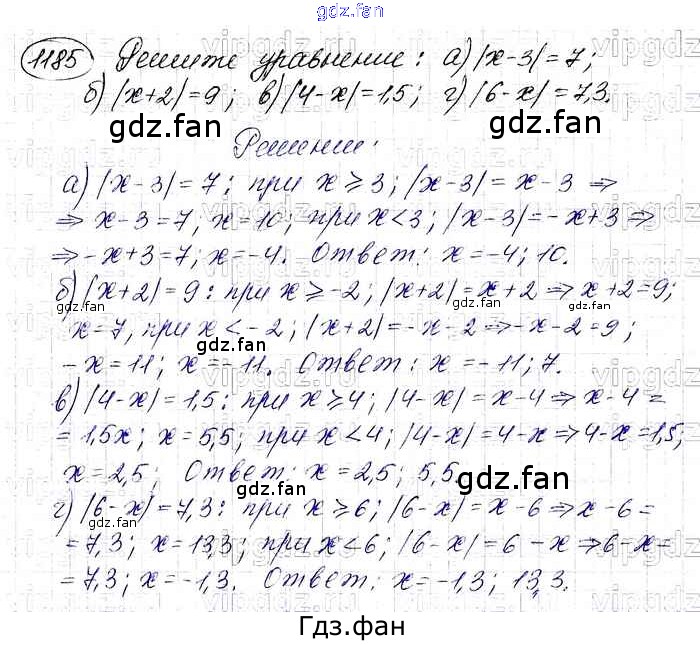 gdz.fan
1185 Решите уравнение: а) |x-3| = 7;
б) |x+2| = 9; в) |4-x| = 1,5; г) |6-x| = 7,3.
gdz.fan gdz.fan
Решение:
а) |x-3| = 7: при x ⩾ 3; |x-3| = x-3 ⇒
⇒ x-3 = 7, x = 10; при x < 3; |x-3| = -x+3 ⇒
⇒ -x+3 = 7; x = -4. Ответ: x = -4; 10.
б) |x+2| = 9: при x ⩾ -2; |x+2| = x+2 ⇒ x+2 = 9;
gdz.fan gdz.fan
x = 7, при x < -2; |x+2| = -x-2 ⇒ -x-2 = 9;
gdz.fan
-x = 11; x = -11. Ответ: x = -11; 7.
в) |4-x| = 1,5: при x ⩾ 4; |4-x| = x-4 ⇒ x-4 =
= 1,5x; x = 5,5; при x < 4; |4-x| = 4-x ⇒ 4-x = 1,5;
x = 2,5; Ответ: x = 2,5; 5,5.
gdz.fan gdz.fan
г) |6-x| = 7,3: при x ⩾ 6; |6-x| = x-6 ⇒ x-6 =
gdz.fan
= 7,3; x = 13,3; при x < 6; |6-x| = 6-x ⇒ 6-x =
= 7,3; x = -1,3. Ответ: x = -1,3; 13,3.
gdz.fan gdz.fan
Гдз.фан